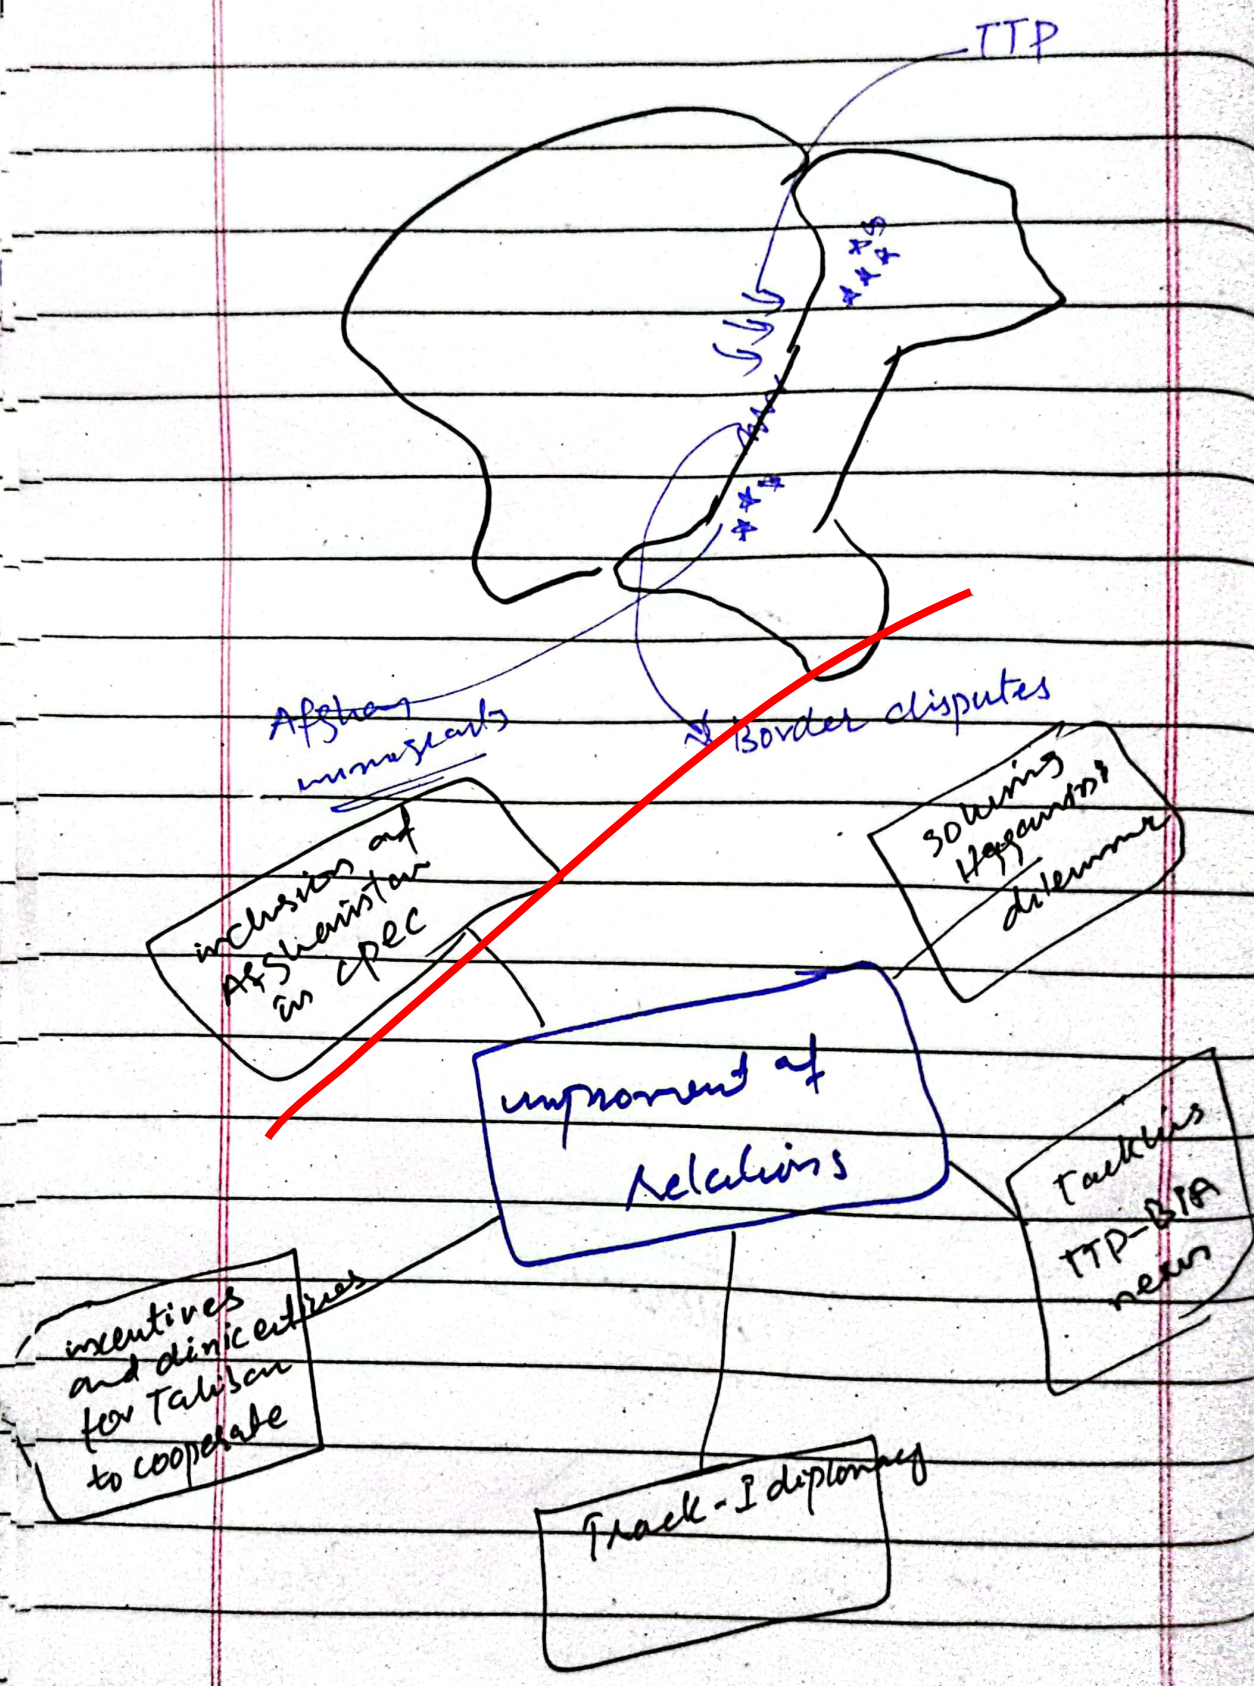 TTP
Afghan
Border disputes
inclusion of
Afghanistan
in cpec
solving
Haqqanis
dilemma
improment of
relations
Tackling
TTP-BLA
nexus
incentives
and dinicentives
for Taliban
to cooperate
Track-I diplomacy